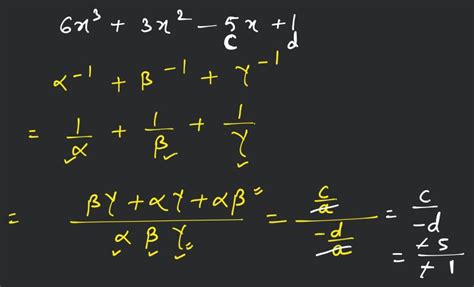 6x³ + 3x² − 5x + 1
c d
α⁻¹ + β⁻¹ + γ⁻¹
= 1/α + 1/β + 1/γ
= (βγ + αγ + αβ)/(α β γ) = (c/a)/(−d/a) = c/−d
= +5/+1